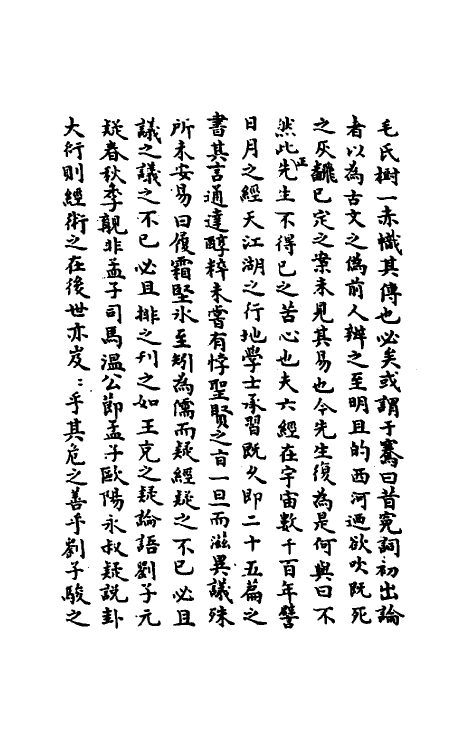 毛氏樹一赤幟其傳也必矣或謂于騫曰昔寃詞初出論
者以為古文之偽前人辨之至明且的西河廼欲吹既死
之灰翻已定之案未見其易也今先生復為是何與曰不
然此正先生不得已之苦心也夫六經在宇宙數千百年譬
日月之經天江湖之行地學士承習既久即二十五篇之
書其言通達醇粹未嘗有悖聖賢之旨一旦而滋異議殊
所未安易曰履霜堅氷至矧為儒而疑經疑之不已必且
議之議之不已必且排之刋之如王充之疑論語劉子元
疑春秋李覯非孟子司馬溫公節孟子歐陽永叔疑說卦
大行則經術之在後世亦岌:乎其危之善乎劉子駿之